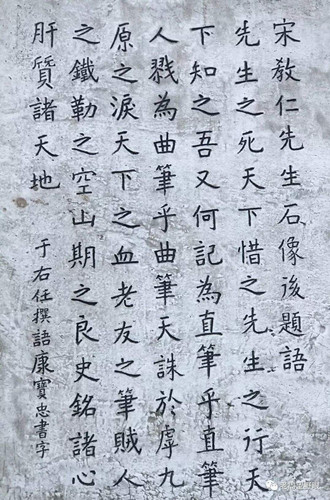 宋教仁先生石像後題語
先生之死天下惜之先生之行天
下知之吾又何記為直筆乎直筆
人戮為曲筆乎曲筆天誅於虖九
原之淚天下之血老友之筆賊人
之鐵勒之空山期之良史銘諸心
肝質諸天地 于右任撰語康寶忠書字